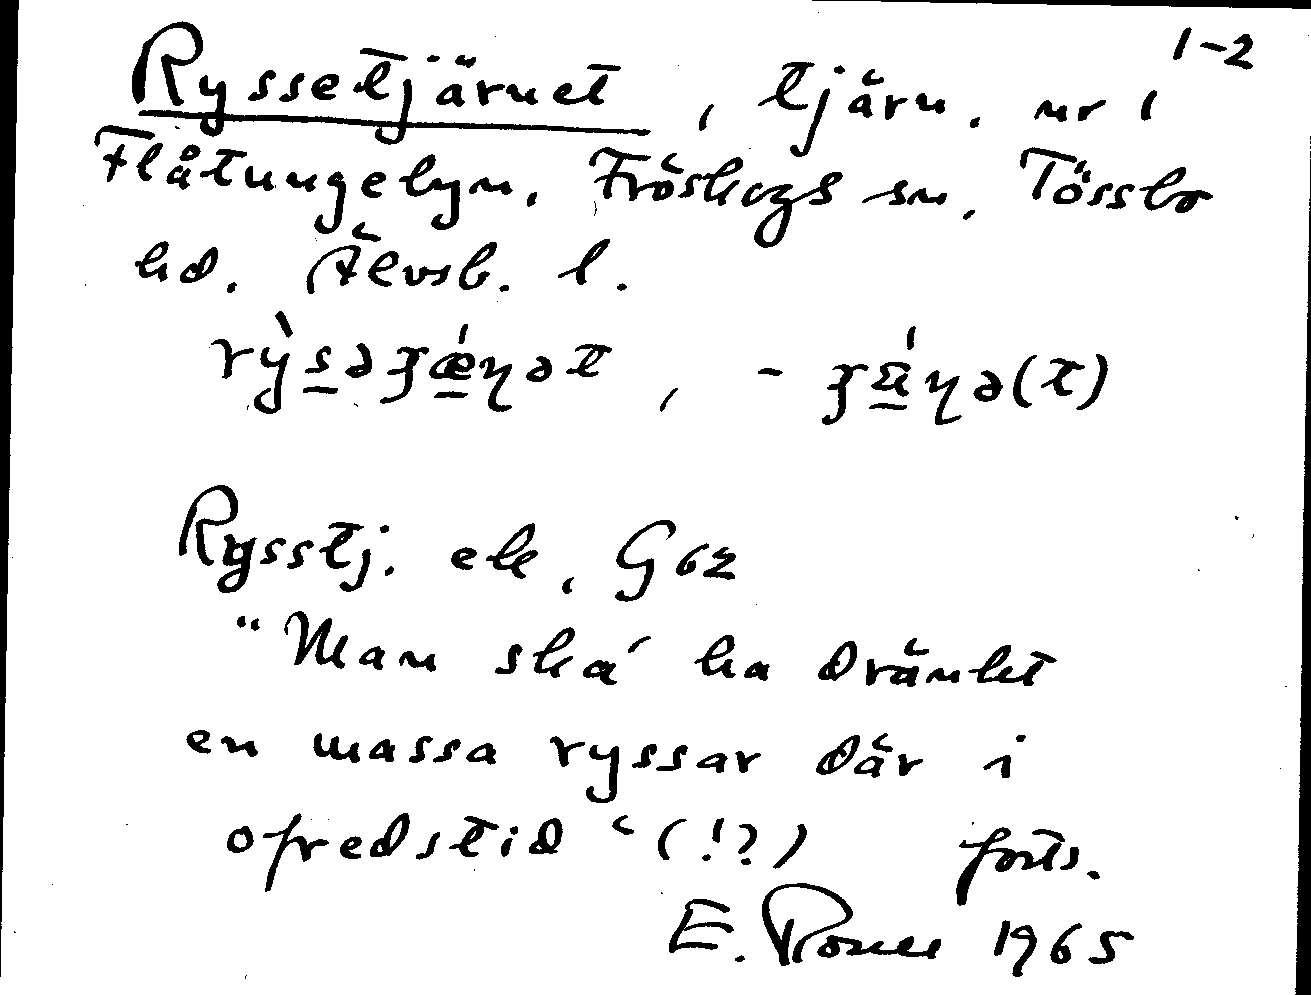 1-2
Ryssetjärnet, tjärn, nr 1
Flåtungebyn, Fröskogs sn, Tössbo
hd, Älvsb. l.
rỳs̲əʒǽ̲ɳət, -ʒä̲́ɳə(t)
Rysstj. ek, G 62
"Man ska´ ha dränkt
en massa ryssar där i
ofredstid" (!?) forts.
E. 1965